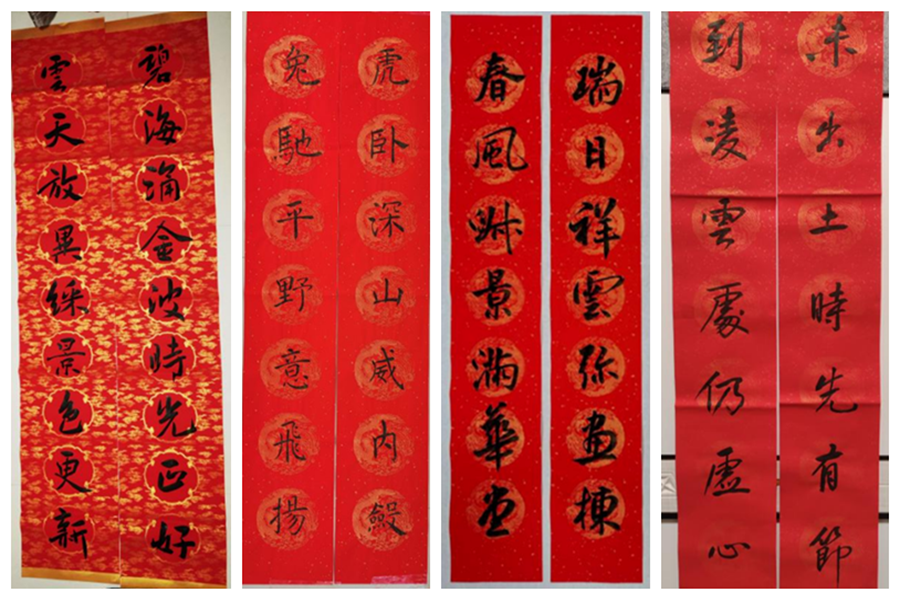 碧海涌金波時光正好
雲天放異綵景色更新
虎卧深山威内斂
兔馳平野意飛揚
瑞日祥雲弥畫棟
春風淑景滿華堂
未出土時先有節
到凌雲處仍虛心